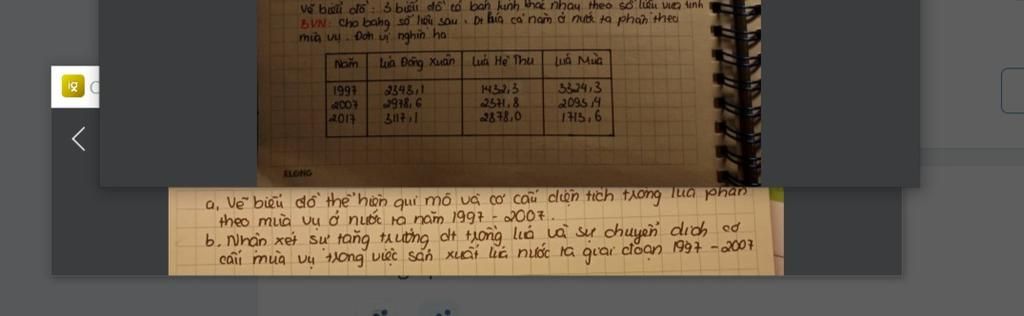 Vẽ biểu đồ : 3 biểu đồ có bán kính khác nhau theo số liệu vừa tính
BVN: Cho bảng số liệu sau . Dt lúa cả năm ở nước ta phân theo
mùa vụ . Đơn vị nghìn ha
Năm Lúa Đông Xuân Lúa Hè Thu Lúa Mùa
1997 2348,1 1432,3 3324,3
2007 2978,6 2371,8 2095,4
2017 3117,1 2878,0 1713,6
KLONG
a, Vẽ biểu đồ thể hiện qui mô và cơ cấu diện tích trồng lúa phân
theo mùa vụ ở nước ta năm 1997 - 2007.
b, Nhận xét sự tăng trưởng dt trồng lúa và sự chuyển dịch cơ
cấu mùa vụ trong việc sản xuất lúa nước ta giai đoạn 1997 - 2007